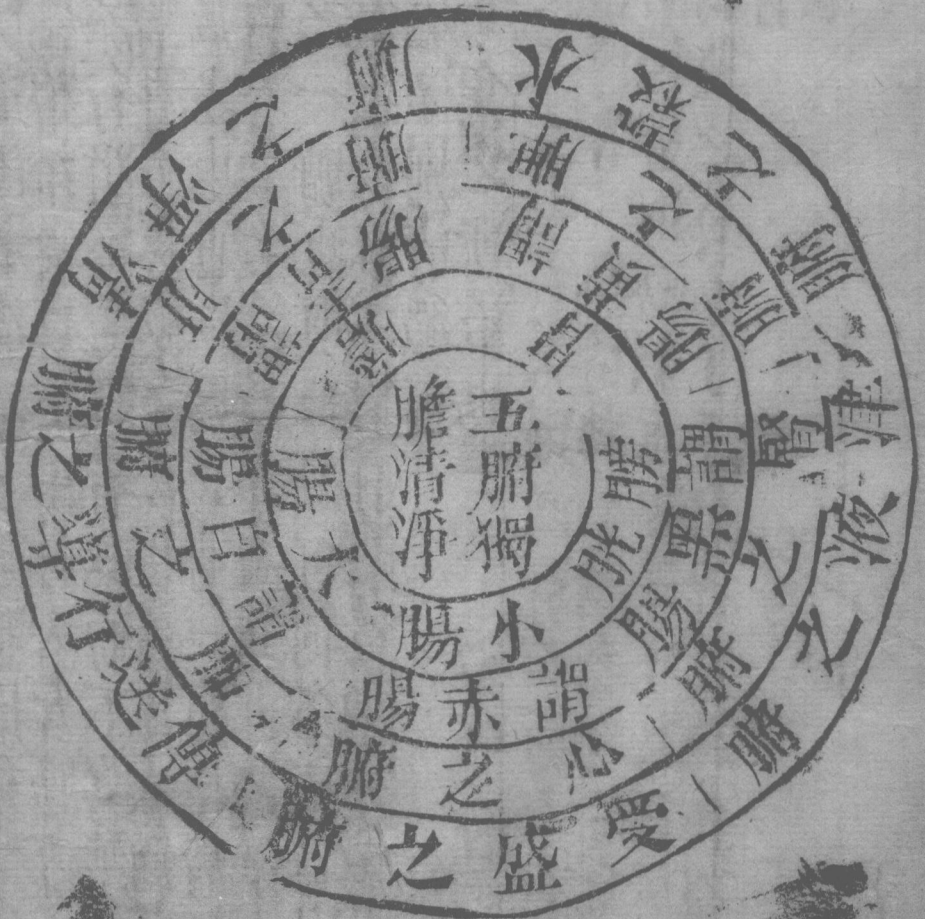 五腑獨
膽清淨
小腸
大腸
膽
胃
膀胱
謂赤腸
謂白腸
謂青腸
謂黃腸
謂黑腸
心之腑
肺之腑
肝之腑
脾之腑
腎之腑
受盛之腑
傳送行導之腑
清淨之腑
水穀之腑
津液之腑